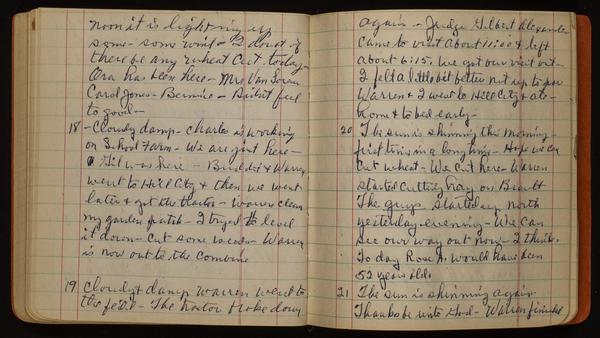 noon it is lighting up
some - some wind & I doubt if
there be any wheat cut today -
Ora has been here - Mrs Van Loran
Carol Jones - Bernice - But feel
to good -
18 - Cloudy damp - Charles is working
on School Farm - We are just here -
Gil was here - Burdett & Warren
went to Hill City & then we went
later & got the tractor - Warren clean
my garden patch - I tryed to level
it down - Cut some weeds - Warren
is now out to the combine
19 Cloudy & damp Warren went to
the field - The tractor broke down
again - Judge Gilbert Alexander
came to visit about 11:00 & left
about 6:15. We got our visit out -
I felt a little bit better not up to par
Warren & I went to Hill City & ate -
home & to bed early -
20 The sun is shinning this morning
first time in a long time - Hope we can
cut wheat - We cut here - Warren
started cutting hay on
The guys started up north
yesterday evening - We can
see our way out now - I think.
To day Rose A. would have been
52 years old.
21 The sun is shinning again
Thanks be unto God - Warren finished